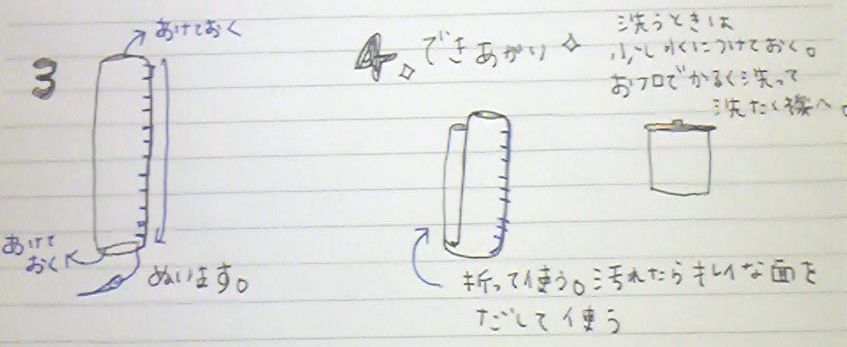 3
あけておく
あけて
おく
ぬいます。
4. できあがり
洗うときは
少し水につけておく。
おフロでかるく洗って
洗たく機へ。
折って使う。汚れたらキレイな面を
だして使う